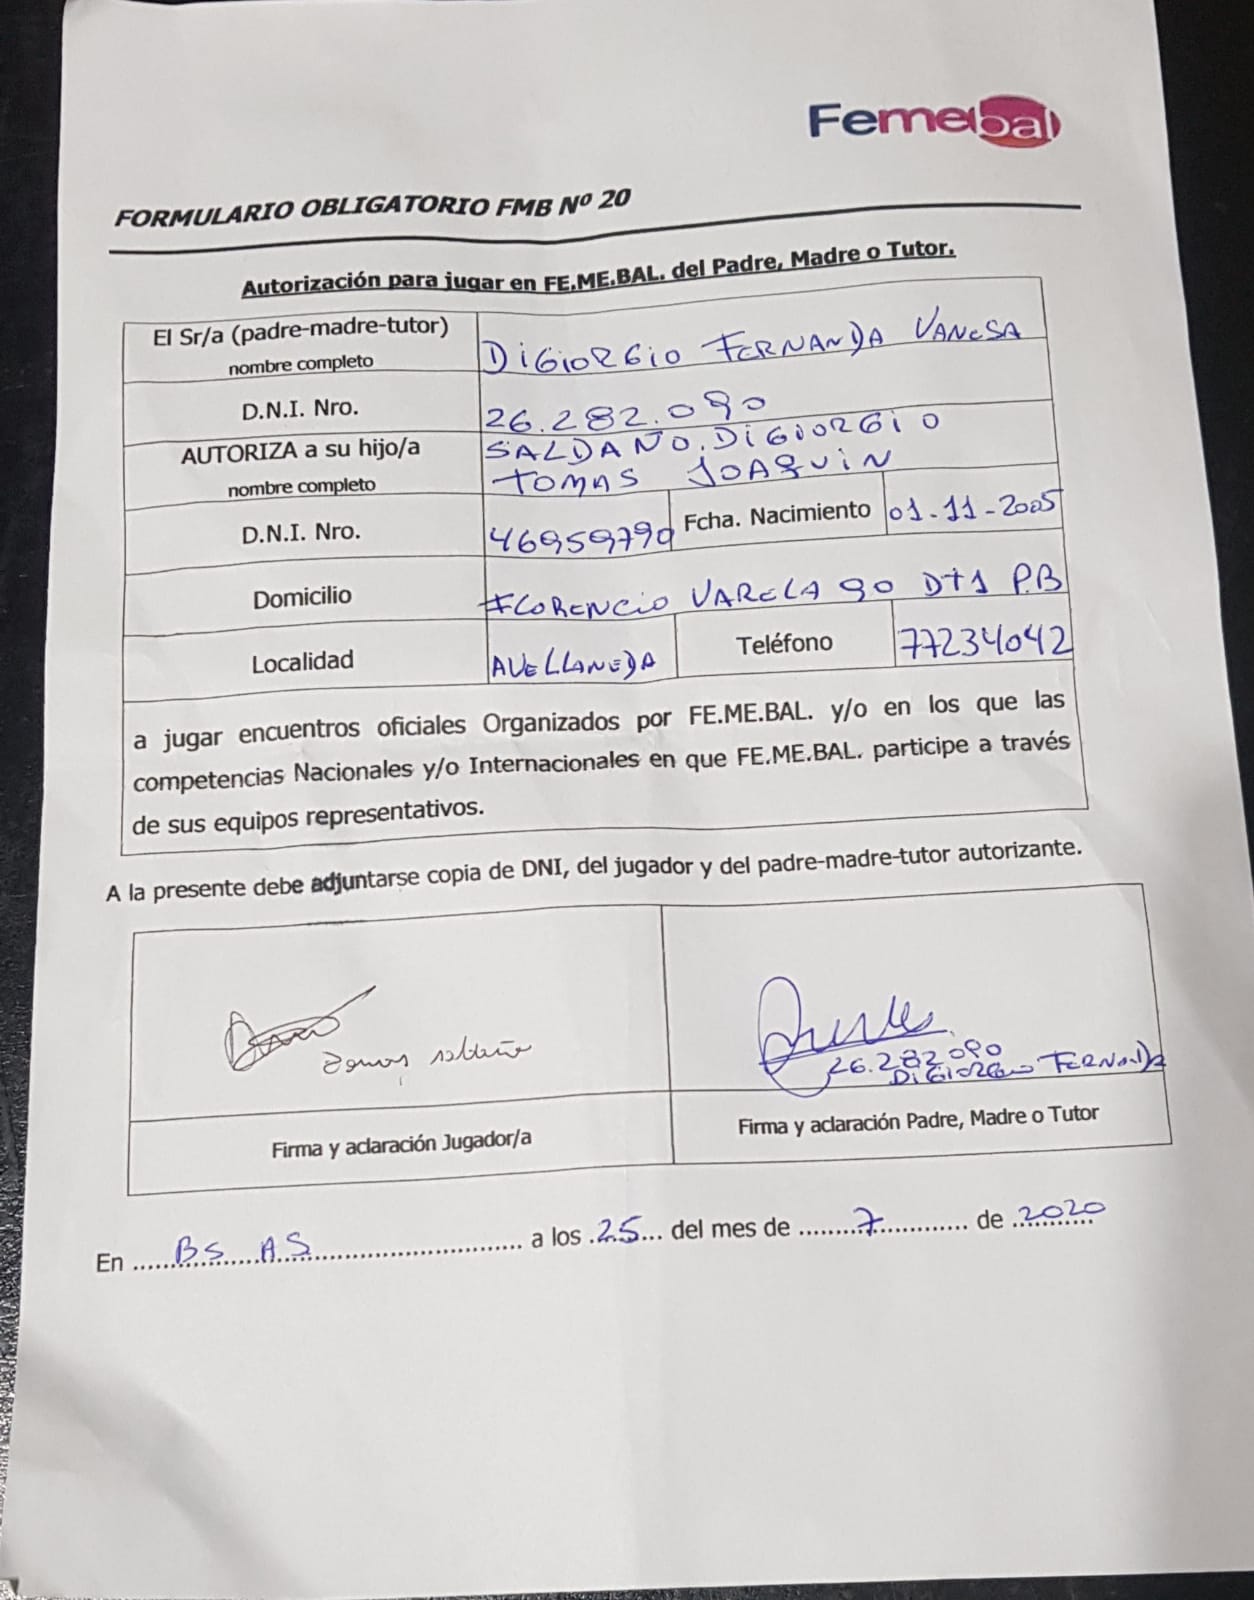 Femebal
FORMULARIO OBLIGATORIO FMB Nº 20
Autorización para jugar en FE.ME.BAL. del Padre, Madre o Tutor.
El Sr/a (padre-madre-tutor)
nombre completo
DIGIORGIO FERNANDA VANESA
D.N.I. Nro.
26.282.090
AUTORIZA a su hijo/a
nombre completo
SALDAÑO.DIGIORGIO
TOMAS JOAQUIN
D.N.I. Nro.
46959790
Fcha. Nacimiento
01-11-2005
Domicilio
FLORENCIO VARELA 90 DT1 P.B
Localidad
AVELLANEDA
Teléfono
77234042
a jugar encuentros oficiales Organizados por FE.ME.BAL. y/o en los que las
competencias Nacionales y/o Internacionales en que FE.ME.BAL. participe a través
de sus equipos representativos.
A la presente debe adjuntarse copia de DNI, del jugador y del padre-madre-tutor autorizante.
Tomas saldaño
26.282.090
DIGIORGIO FERNANDA
Firma y aclaración Jugador/a
Firma y aclaración Padre, Madre o Tutor
En BS AS a los 25 del mes de 7 de 2020